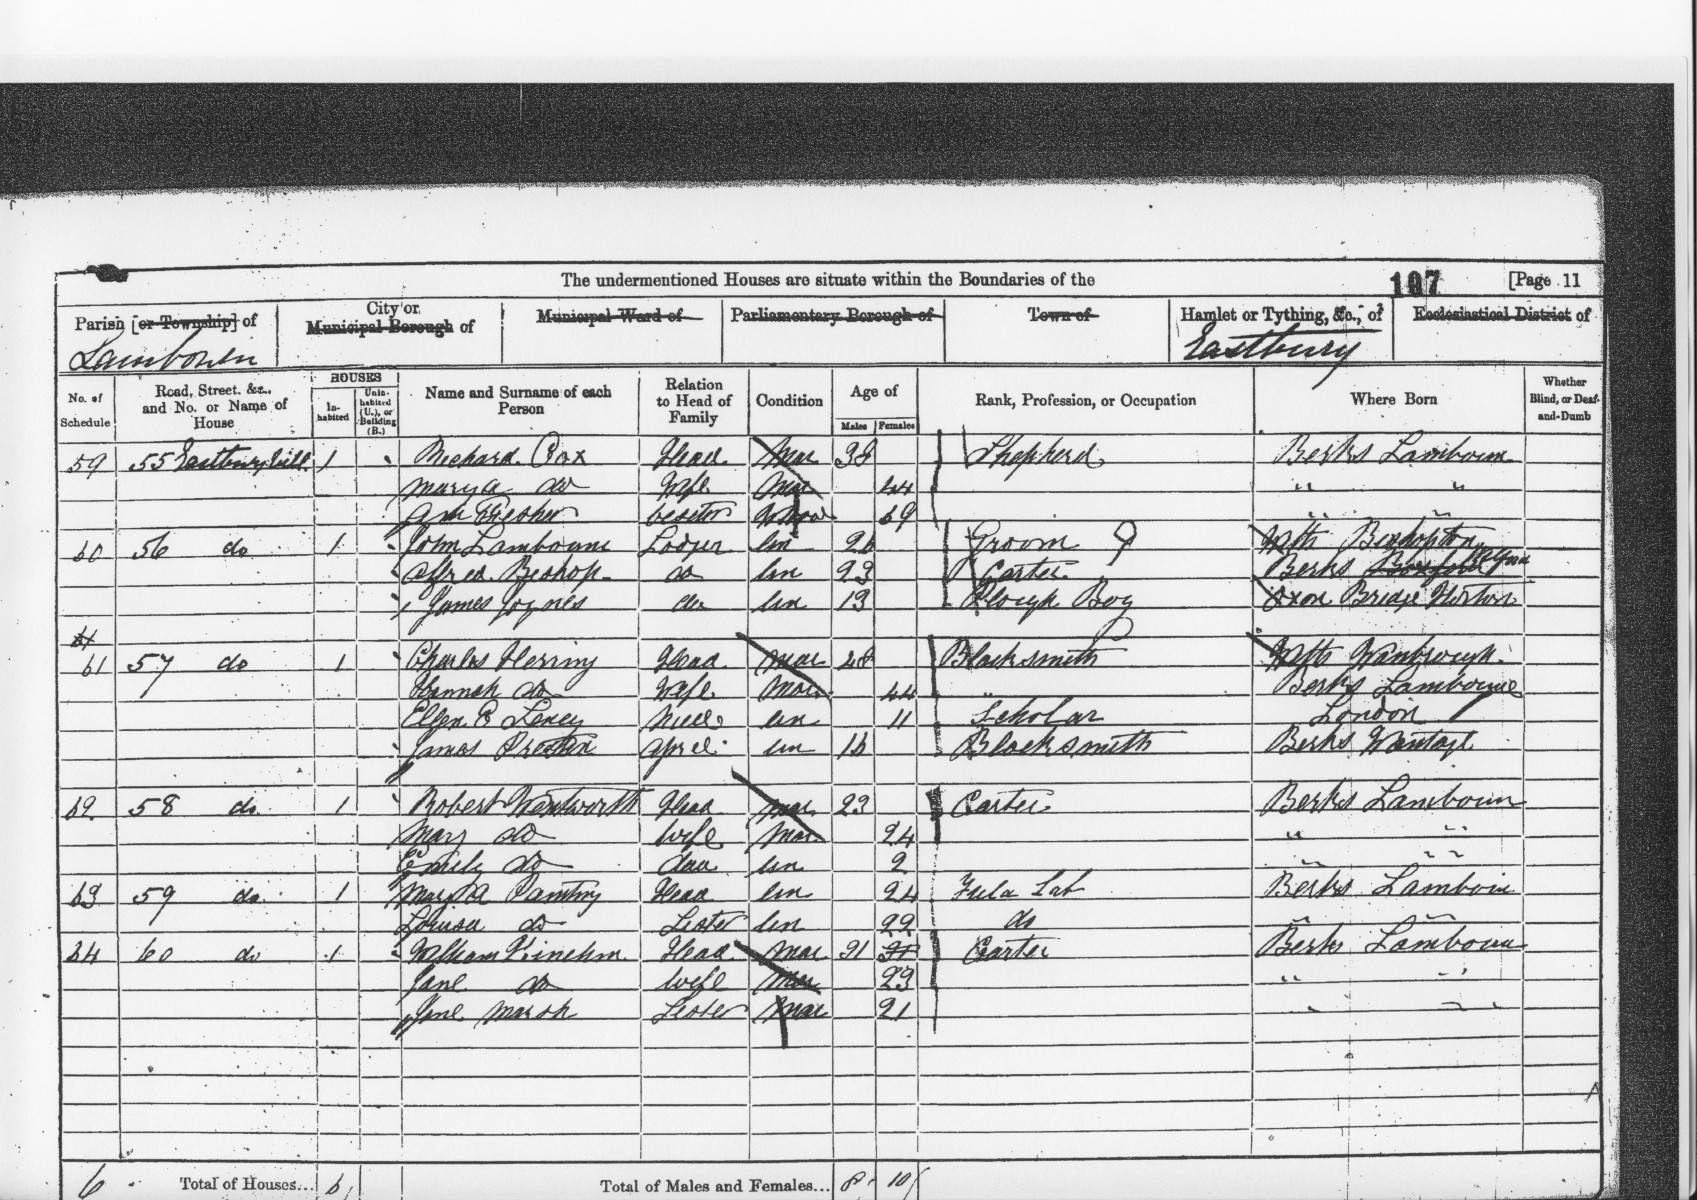 The undermentioned Houses are situate within the Boundaries of the 107 [Page 11
Parish [or Township] of City or Municipal Borough of Municipal Ward of Parliamentary Borough of Town of Hamlet or Tything, &c., of Ecclesiastical District of
Lambourn Eastbury
No. of Schedule Road, Street, &c., and No. or Name of House HOUSES Inhabited Uninhabited (U.), or Building (B.) Name and Surname of each Person Relation to Head of Family Condition Age of Males Females Rank, Profession, or Occupation Where Born Whether Blind, or Deaf-and-Dumb
59 55 Eastbury hill 1 Richard Cox Head Mar 38 Shepherd Berks Lambourn
Mary A do Wife Mar 44 " "
Ann 69 " "
60 56 do 1 John Lambourne Lodger Un 26 Groom Wilts
Alfred Bishop do Un 23 Carter Berks Boxford
James Joynes do Un 13 Plough Boy Oxon Brize Norton
61
61 57 do 1 Charles Herring Head Mar 28 Blacksmith Wilts Wanbrough
Hannah do Wife Mar 44 Berks Lambourne
Ellen E Niece Un 11 Scholar London
James Un 16 Blacksmith Berks Wantage
62 58 do 1 Robert Wentworth Head Mar 23 Carter Berks Lambourn
Mary do Wife Mar 24 " "
Emily do Dau Un 2 " "
63 59 do 1 Mary A Head Un 24 Lab Berks Lambourn
Louisa do Sister Un 22 do " "
64 60 do 1 William Head Mar 31 Carter Berks Lambourn
Jane do Wife Mar 23 " "
Jane Marsh Sister Mar 21 " "
6 Total of Houses... 6 Total of Males and Females... 8 10